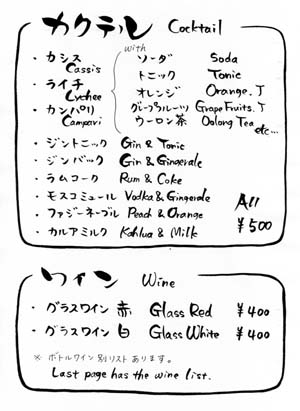 カクテル Cocktail
with
・カシス Cassis
・ライチ Lychee
・カンパリ Campari
ソーダ Soda
トニック Tonic
オレンジ Orange.J
グレープフルーツ Grape Fruits.J
ウーロン茶 Oolong Tea
etc...
・ジントニック Gin & Tonic
・ジンバック Gin & Gingerale
・ラムコーク Rum & Coke
・モスコミュール Vodka & Gingerale
・ファジーネーブル Peach & Orange
・カルアミルク Kahlua & Milk
All ¥500
ワイン Wine
・グラスワイン 赤 Glass Red ¥400
・グラスワイン 白 Glass White ¥400
※ ボトルワイン別リストあります。
Last page has the wine list.